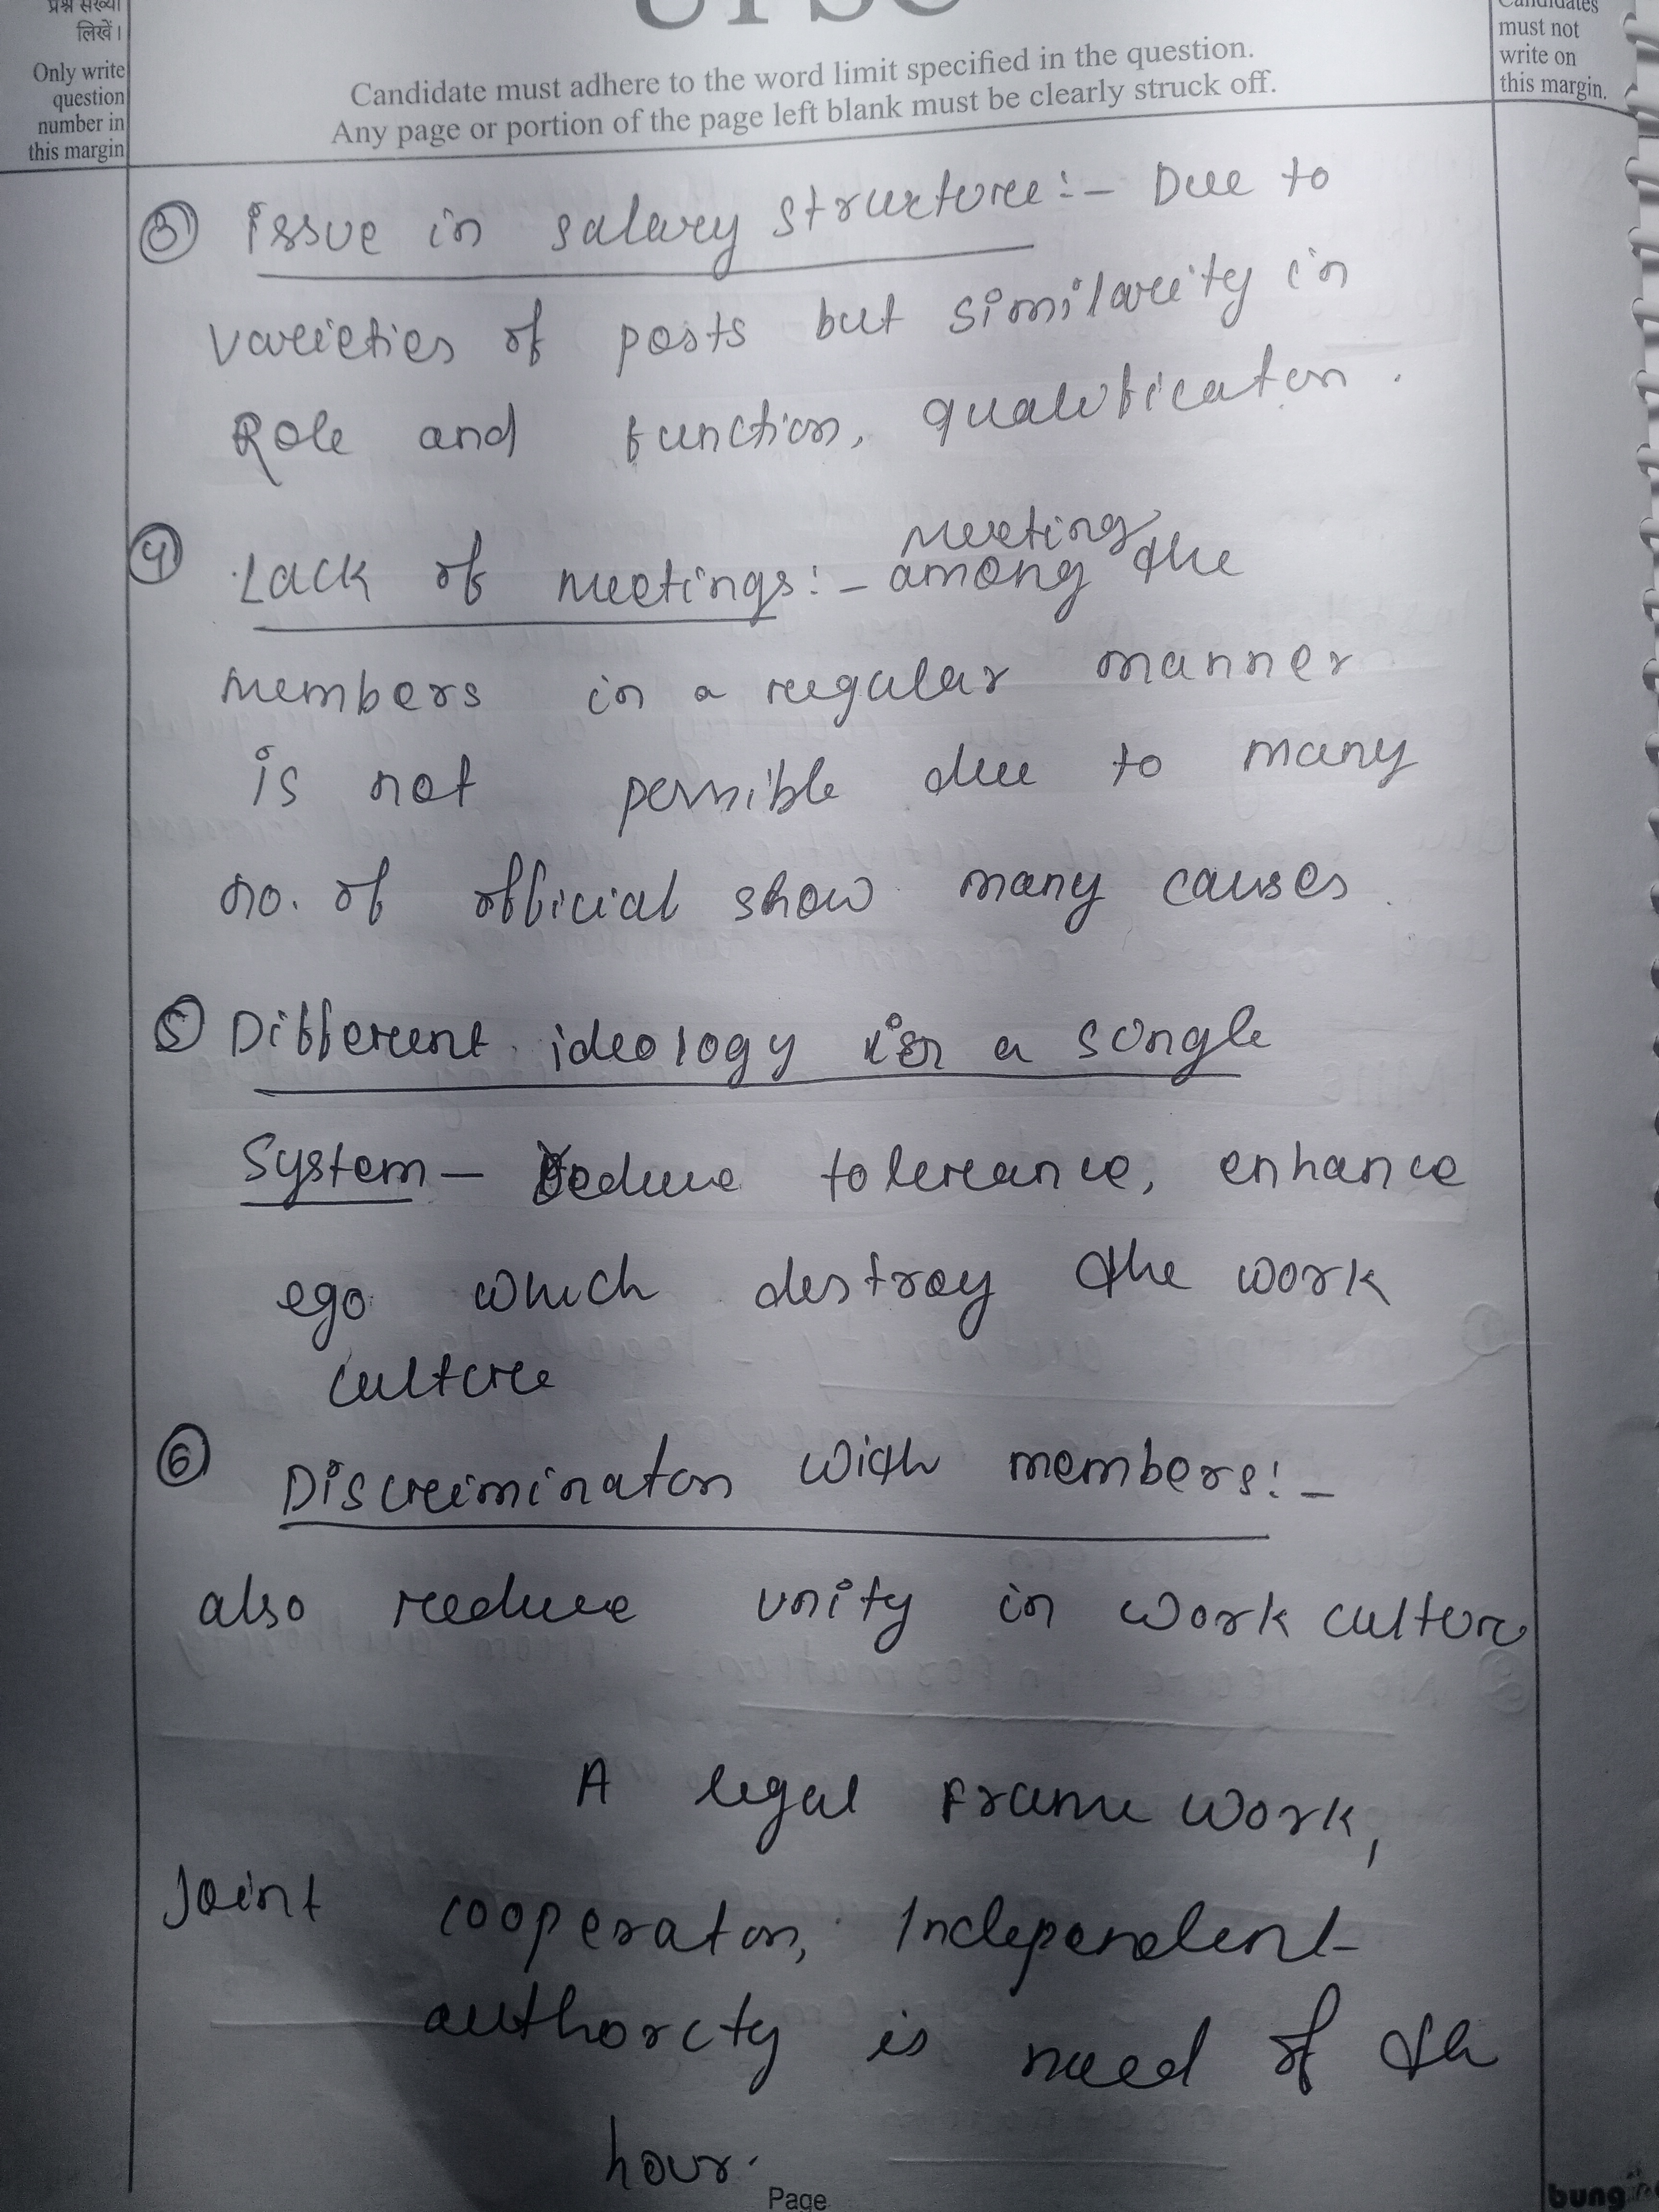 प्रश्न संख्या
लिखें।
Only write
question
number in
this margin
UPSC
Candidate must adhere to the word limit specified in the question.
Any page or portion of the page left blank must be clearly struck off.
Candidates
must not
write on
this margin.
③ Issue in salary structure:- Due to
varieties of posts but similarity in
Role and function, qualification.
④ Lack of meetings:- meeting among the
members in a regular manner
is not possible due to many
no. of official show many causes.
⑤ Different ideology in a single
System - Reduce tolerance, enhance
ego which destroy the work
culture
⑥ Discriminaton with members:-
also reduce unity in work culture
A legal Frame work,
Joint cooperaton, Independent
authority is need of the
hour.
Page